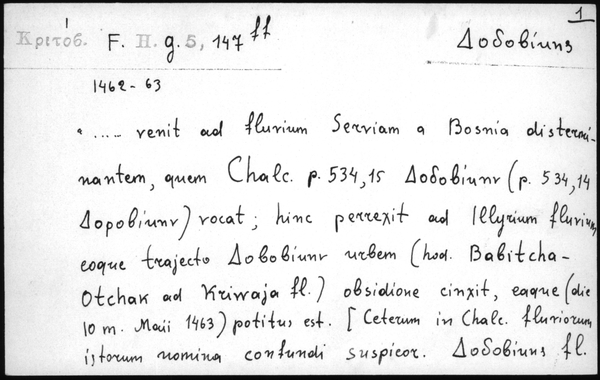 1
Κριτοβ. F. H. g. 5, 147 ff
Δοδοβίωης
1462-63
"..... venit ad fluvium Serviam a Bosnia distermi-
nantem, quem Chalc. p. 534,15 Δοδοβίωην (p. 534,14
Δοροβίωην) vocat; hinc perrexit ad Illyrium fluvium,
eoque trajecto Δοβοβίωην urbem (hod. Babitcha-
Otchak ad Kriwaja fl.) obsidione cinxit, eaque (die
10 m. Maii 1463) potitus est. [Ceterum in Chalc. fluviorum
istorum nomina confundi suspicor. Δοδοβίωης fl.